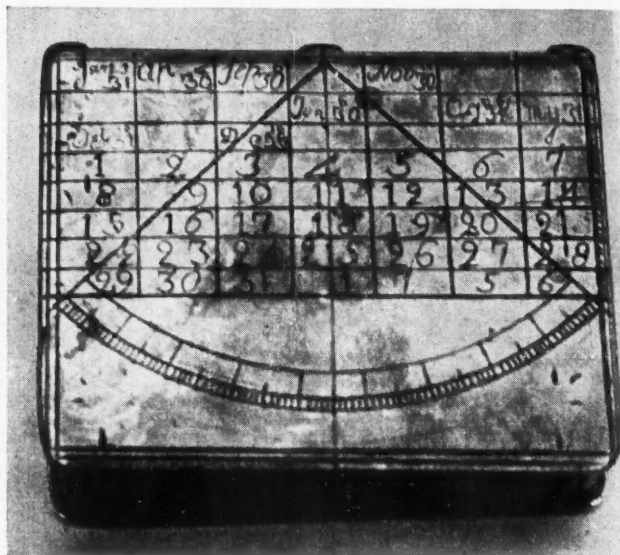 Jan 31 Ap 30 Sep 30 Nov 30
Jun 30 Og 31 My 31
Dec 31
1 2 3 4 5 6 7
8 9 10 11 12 13 14
15 16 17 18 19 20 21
22 23 24 25 26 27 28
29 30 31 5 6